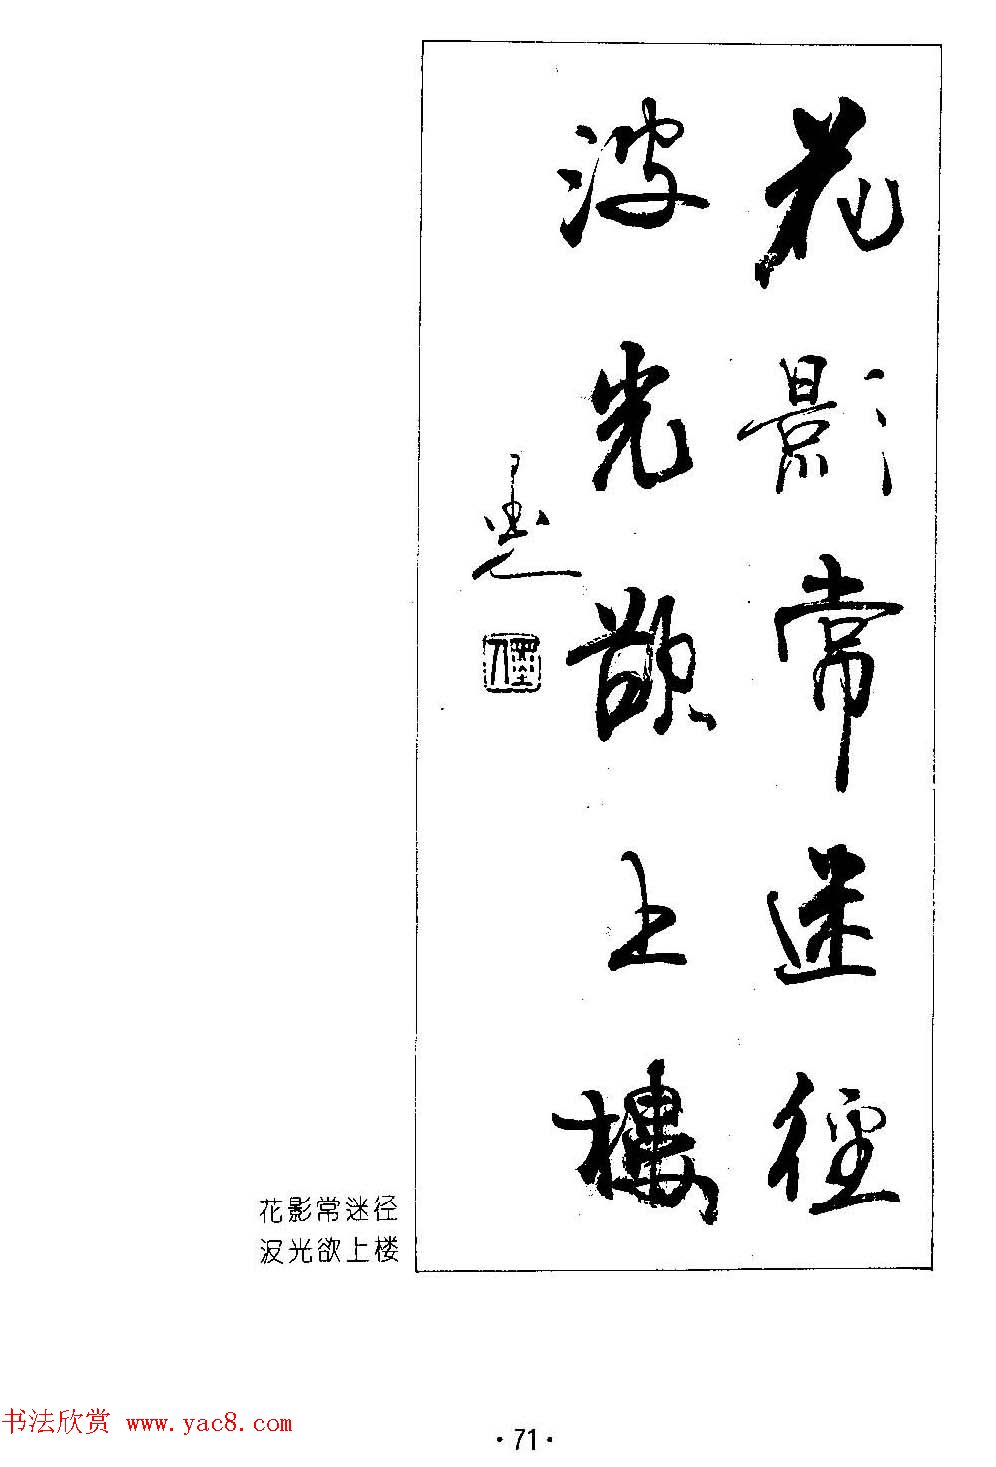 花影常迷径
波光欲上樓
花影常迷径
波光欲上楼
书法欣赏 www.yac8.com
·71·